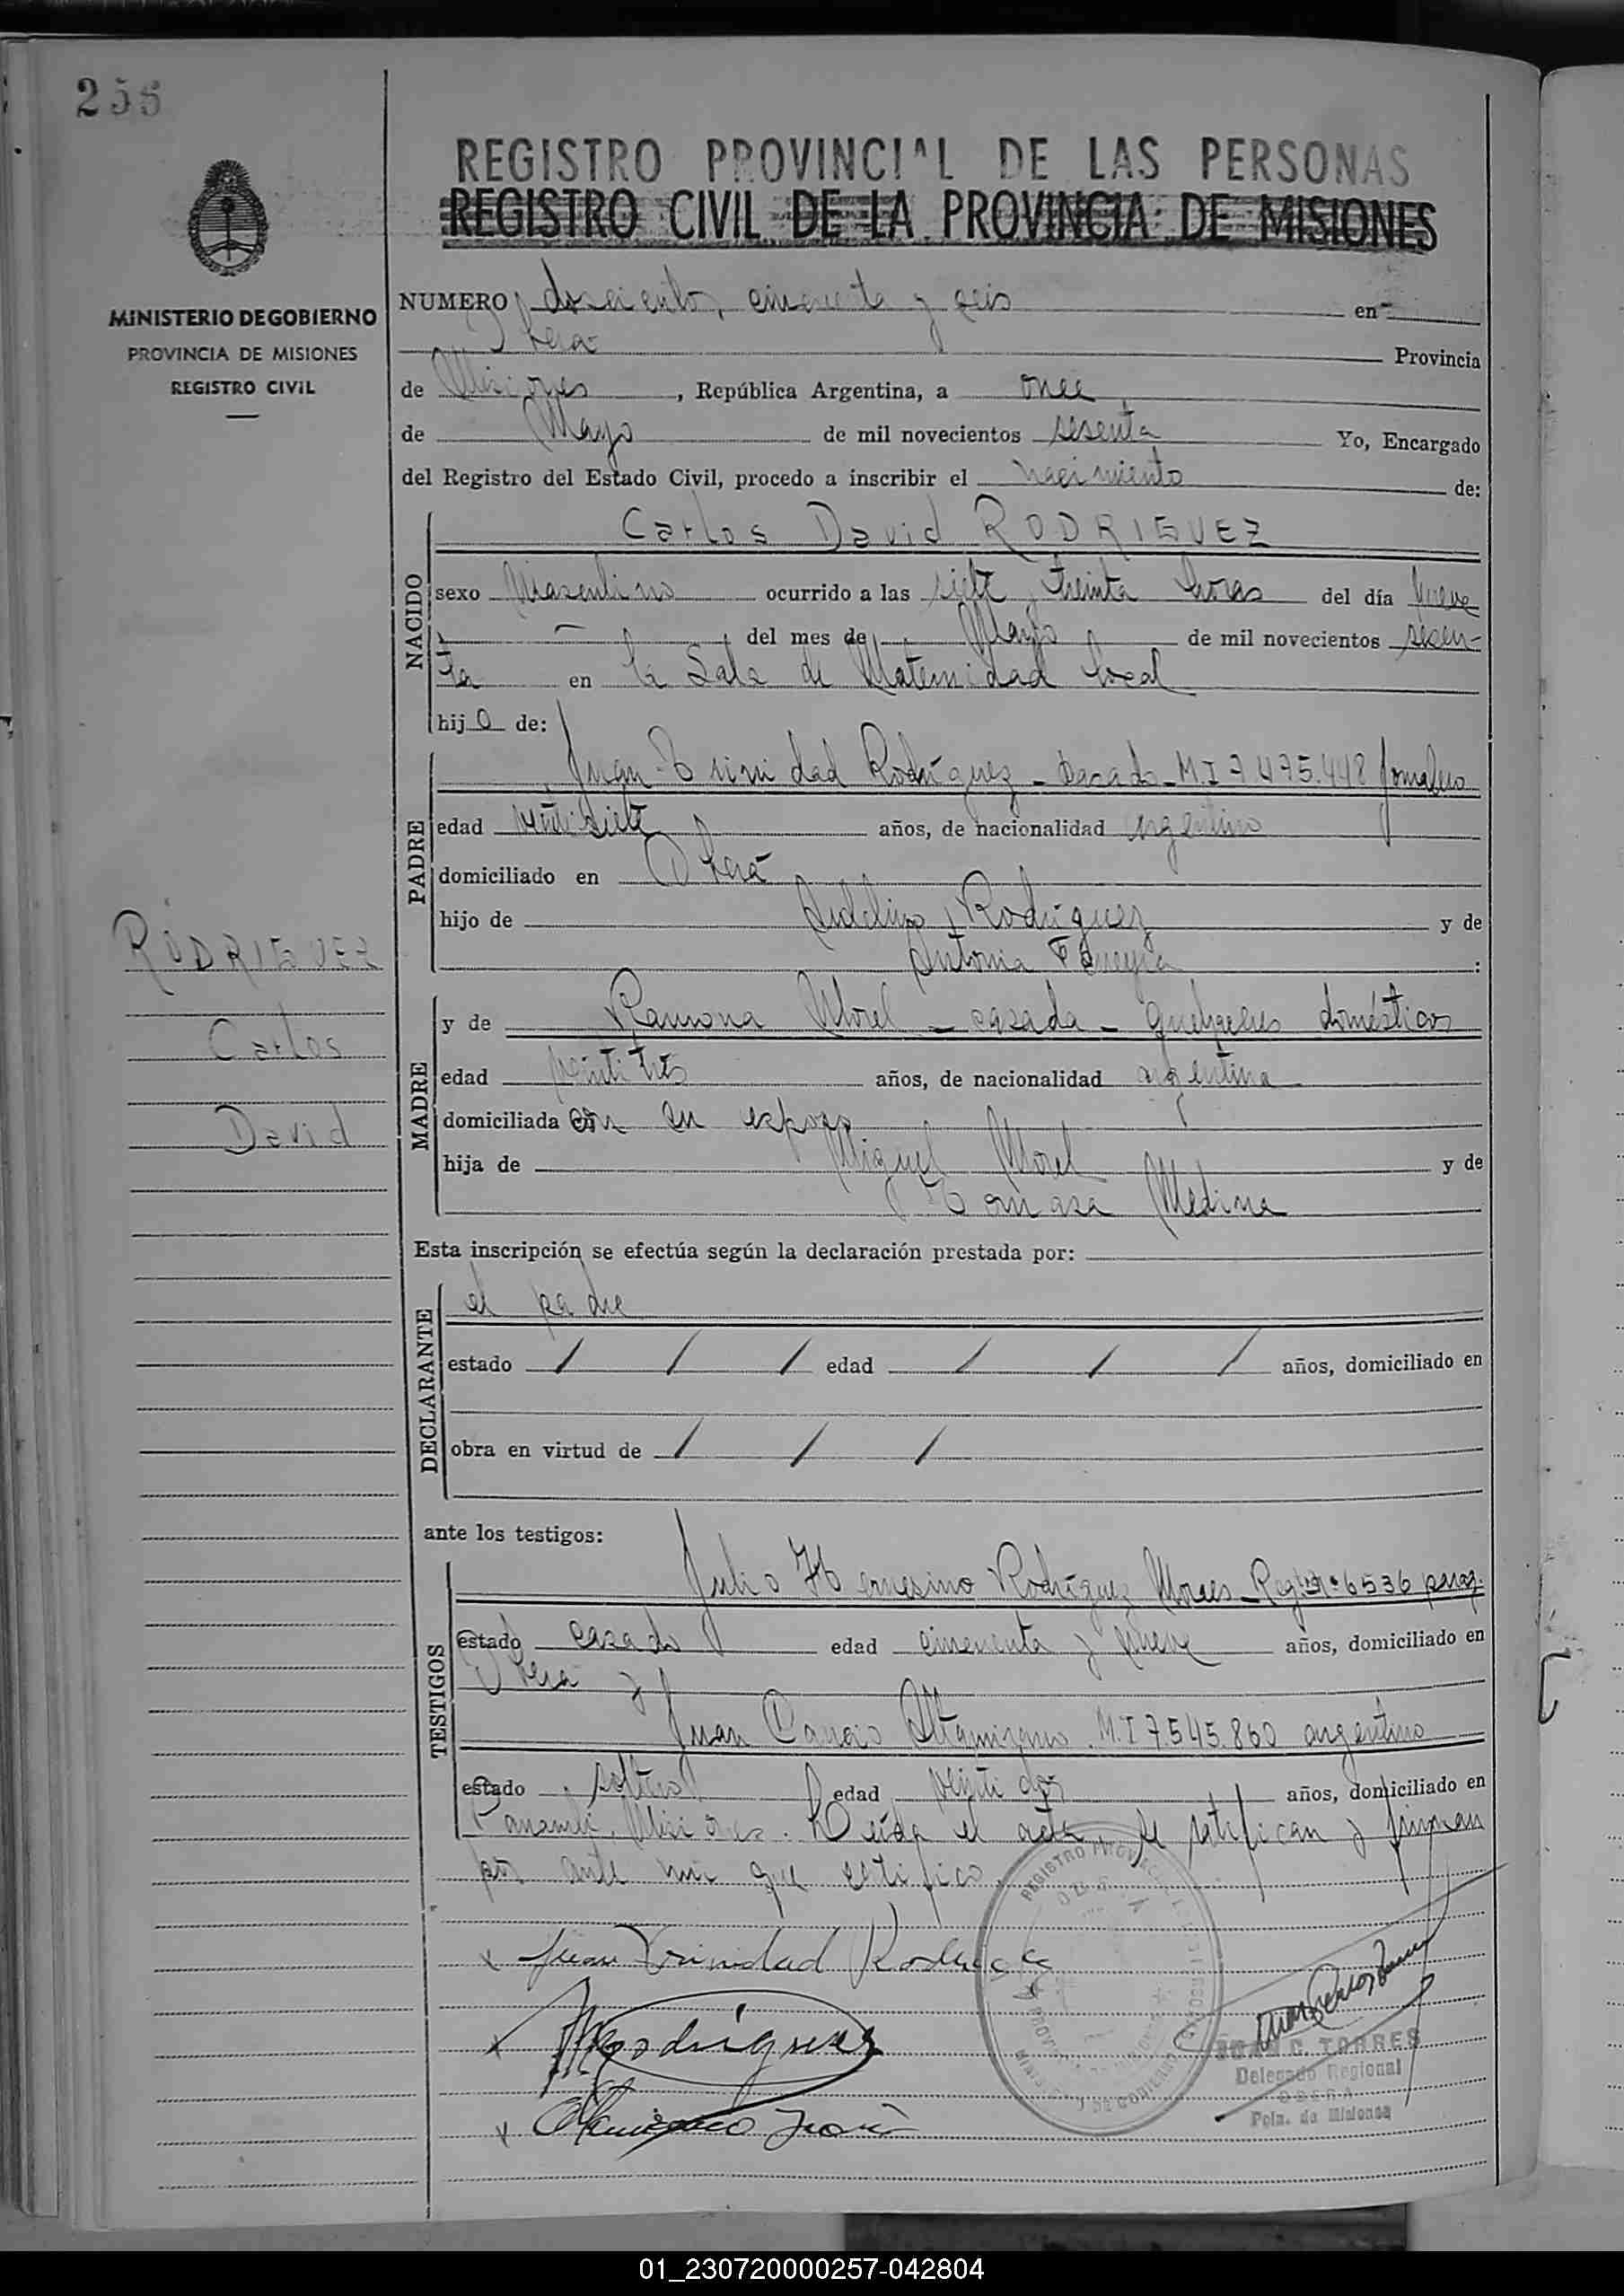 256
REGISTRO PROVINCIAL DE LAS PERSONAS
REGISTRO CIVIL DE LA PROVINCIA DE MISIONES
MINISTERIO DE GOBIERNO
PROVINCIA DE MISIONES
REGISTRO CIVIL
NUMERO doscientos cincuenta y seis en
Oberá Provincia
de Misiones, República Argentina, a once
de Mayo de mil novecientos sesenta Yo, Encargado
del Registro del Estado Civil, procedo a inscribir el nacimiento de:
NACIDO
Carlos David RODRIGUEZ
sexo Masculino ocurrido a las siete y treinta horas del día nueve
del mes de Mayo de mil novecientos sesen-
ta en la Sala de Maternidad local
hijo de:
PADRE
Juan Trinidad Rodríguez - casado - M.I 7.475.448 jornalero
edad veintisiete años, de nacionalidad argentino
domiciliado en Oberá
hijo de Rodríguez y de
Antonia Ferreyra
RODRIGUEZ
Carlos
David
MADRE
y de Ramona Morel - casada - quehaceres domésticos
edad veintitrés años, de nacionalidad argentina
domiciliada con su esposo
hija de Miguel Morel y de
Tomasa Medina
Esta inscripción se efectúa según la declaración prestada por:
DECLARANTE
el padre
estado / / / edad / / / años, domiciliado en
obra en virtud de / / /
ante los testigos:
TESTIGOS
Julio Rodríguez 6536 parag.
estado casado edad cincuenta y nueve años, domiciliado en
Oberá y
Juan Altamirano. M.I 7.545.860 argentino
estado soltero edad veintidos años, domiciliado en
Panambí, Misiones. Leída el acta, se ratifican y firman
por ante mí que certifico.
Juan Trinidad Rodriguez
Rodríguez
JUAN C. TORRES
Delegado Regional
OBERA
Pcia. de Misiones
01_230720000257-042804